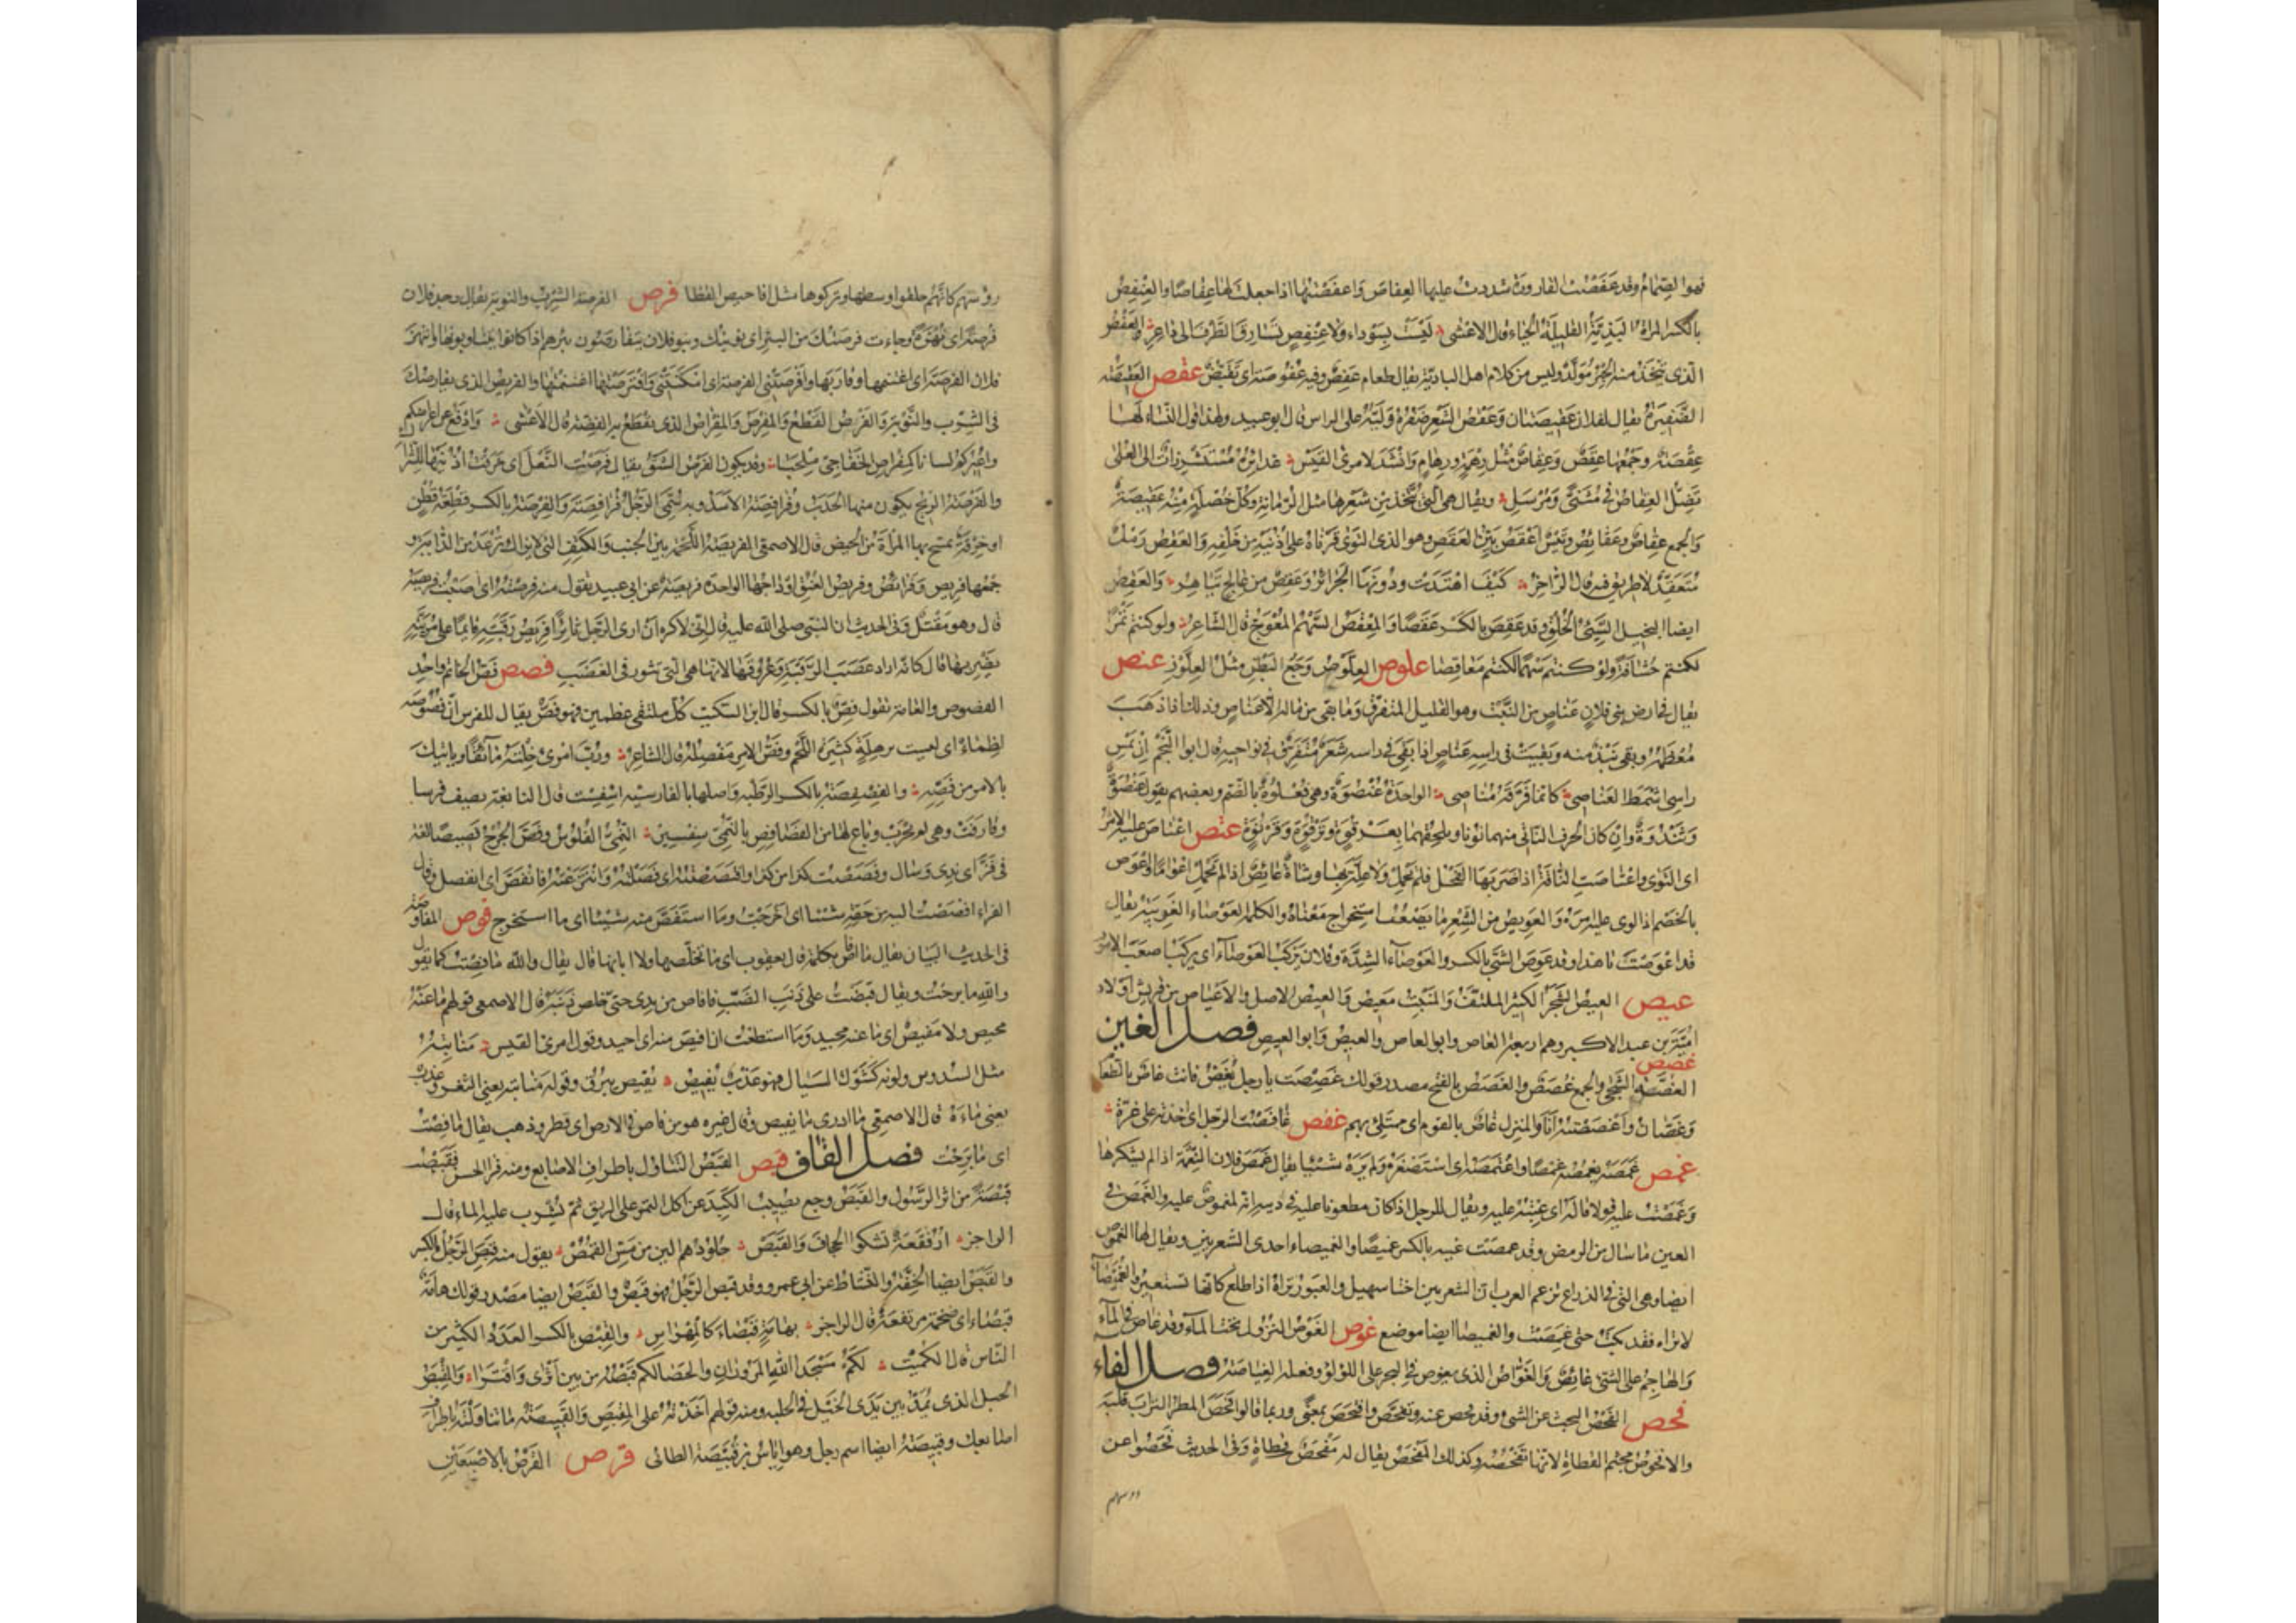 فهو الصِّمَامُ وقد عَفَصْتُ القارورةَ شددت عليها العِفاصَ وَاَعفَصْتُها اذا جعلتَ لها عِفَاصًا والعِنْفِصُ
بالكسر المراة البَذِيَّةُ القليلَةُ الحَياء قال الاعشى لَيْسَتْ بِسَوداء ولا عِنْفِصٍ تُسَارِقُ الطَّرْفَ الى داعِرٍ والعَفْصُ
الّذى يتّخذ منه الحِبْرُ مُوَلَّدٌ وليس من كلام اهل البادية يقال طعام عَفِصٌ وفيه عُفُوصَة اى تَقَبُّضٌ عقص العَقِيصَةُ
الضَّفِيرَةُ يقال لفلان عَقِيصَتان وَعَقْصُ الشَّعرِ ضَفْرُهُ وَلَيُّهُ على الراس قال ابو عبيد ولهذا قول النساء لها
عِقْصَةٌ وجَمْعُها عِقَصٌ وَعِقاصٌ مثل رِهْمَةٍ ورِهامٍ وانشد لامرئ القيس غدائرُهُ مُسْتَشْزِراتٌ الى العُلى
تَضِلُّ العِقاصُ فى مُثَنّىً وَمُرْسَلِ ويقال هى الّتى تتّخذ من شعرها مثل الرمّانة وكلّ خُصْلَةٍ منه عَقِيصَةٌ
والجمع عِقاصٌ وعَقائصُ وتَيْسٌ اَعْقَصُ بَيِّنُ العَقَصِ وهو الذى التوى قَرْناهُ على اُذُنَيْهِ من خَلْفِهِ والعَقِصُ رَمْلٌ
مُتَعَقِّدٌ لا طريق فيه قال الراجز كَيْفَ اهْتَدَتْ ودُونَها الجَزائِرُ وعَقِصٌ من عالِجٍ تَيَاهِرُ والعَقِصُ
ايضا البخيل السَّيِّئُ الخُلُقِ وقد عَقِصَ بالكسر عَقَصًا والمِعْقَصُ السَّهْمُ المُعْوَجُّ قال الشاعر ولو كنتم تَمْرًا
لكنتم حُشافَةً ولو كنتم سَهْمًا لكنتم مَعاقِصا علوص العِلَّوْصُ وَجَعُ البَطْنِ مثل العِلَّوْزِ عنص
يقال فى ارض بنى فلان عَناصٍ من النَّبْت وهو القليل المتفرّق وما بقى من ماله الّا عَناصٍ وذلك اذا ذهب
مُعْظَمُهُ وبقى نَبْذٌ منه وبقيت فى راسه عَناصٍ اذا بقى فى راسه شعرٌ متفرّق فى نواحيه قال ابو النجم اِنْ يُمْسِ
راسى اَشْمَطَ العَناصى كانّما فَرَّقَهُ مُناصى الواحدة عُنْصُوَةٌ وهى فُعْلُوَةٌ بالضم وبعضهم يقول عَنْصُوَةٌ
وثَنْدُوَةٌ وان كان الحرف الثانى منهما نونا ويلحقهما بعَرْقُوَةٍ وتَرْقُوَةٍ وقَرْنُوَةٍ عوص اعتاصَ عليه الامرُ
اى التوى واعتاصت الناقة اذا ضربها الفحل فلم تحمل ولا علّة بها وشاةٌ عائِصٌ اذا لم تحمل اعواما واعوص
بالخصم اذا لوى عليه امره والعويص من الشعر ما يصعُب استخراج معناه والكلمة العوصاء الغريبة يقال
قد اعوصتَ يا هذا وقد عَوِصَ الشئ بالكسر والعوصاء الشدّة وفلان يركب العوصاء اى يركب اصعب الامور
عيص العيص الشجر الكثير الملتفّ والمنبت معيص والعيص الاصل والاعياص من قريش اولاد
اميّة بن عبد الاكبر وهم اربعة العاص وابو العاص والعيص وابو العيص فصل الغين
غصص
الغُصَّة الشَّجَى والجمع غُصَصٌ والغَصَصُ بالفتح مصدر قولك غَصِصتَ يا رجل تَغَصُّ فانت غاصّ بالطعام
وغَصّان واَغصَصْتُه انا والمنزل غاصٌّ بالقوم اى ممتلئ بهم غفص غافَصْتُ الرجل اى اخذته على غِرّة
غمص غَمَصَهُ يغمصه غمصًا واغتمصه اى استصغره ولم يَرَهُ شيئا يقال غمص فلان النعمة اذا لم يشكرها
وغمصت عليه قولا قاله اى عبته عليه ويقال للرجل اذا كان مطعونا عليه فى دينه انه لمغموص عليه والغمص فى
العين ما سال من الرمص وقد غمصت عينه بالكسر غمصًا والغميصاء احدى الشعريين ويقال لها الغموص
ايضا وهى التى فى الذراع تزعم العرب ان الشعريين اختا سهيل والعبور تراه اذا طلع كانها تستعبر والغميصاء
لا تراه فقد بكت حتى غمصت والغميصا ايضا موضع غوص الغوص النزول تحت الماء وقد غاص فى الماء
والهاجم على الشئ غائص والغوّاص الذى يغوص فى البحر على اللؤلؤ وفعله الغياصة فصل الفاء
فحص الفحص البحث عن الشئ وقد فحص عنه وتفحّص وافتحص بمعنى وربما قالوا فحص المطر التراب قلبه
والافحوص مجثم القطاة لانها تفحصه وكذلك المفحص يقال له مفحص قطاة وفى الحديث فحصوا عن
رؤسهم
رؤسهم كانهم حلقوا وسطها وتركوها مثل افاحيص القطا فرص الفرصة الشِّرب والنوبة يقال وجد فلان
فُرصةً اى نُهزةً وجاءت فرصتك من البئر اى نوبتك وبنو فلان يتفارصون بئرهم اذا كانوا يتناوبونها وانتهز
فلان الفرصة اى اغتنمها وفاز بها وافرصتنى الفرصة اى امكنتنى وافترصتها اغتنمتها والفريص الذى يفارصك
فى الشرب والنوبة والفرص القطع والمِفْرَص والمفراص الذى يقطع به الفضة قال الاعشى وادفع عن اعراضكم
واعيركم لسانا كمفراص الخفاجىّ ملحبا وقد يكون الفرص الشقّ يقال فرصت النعل اى خرقت اذنيها للشراك
والفرصة الريح يكون منها الحدب وفرافصة الاسد وبه سمّى الرجل فرافصة والفِرصة بالكسر قطعة قطن
او خرقة تمسح بها المراة من الحيض قال الاصمعى الفريصة اللحمة بين الجنب والكتف التى لا تزال ترعد من الدابة و
جمعها فريص وفرائص وفريص العنق اوداجها الواحدة فريصة عن ابى عبيد تقول منه فرصته اى اصبت فريصته
قال وهو مقتل وفى الحديث ان النبى صلى الله عليه قال انى لاكره ان ارى الرجل ثائرا فريص رقبته قائما على مريّته
يضربها قال كانه اراد عصب الرقبة وعروقها لانها هى التى تثور فى الغضب فصص فَصّ الخاتم واحد
الفصوص والعامة تقول فِصّ بالكسر قال ابن السكيت كل ملتقى عظمين فهو فصّ يقال للفرس انّ فصوصه
لظماء اى ليست برهلة كثيرة اللحم وفصّ الامر مفصله قال الشاعر وربّ امرئ خلته مائقا وياتيك
بالامر من فصّه والفصفصة بالكسر الرطبة واصلها بالفارسية اسفست قال النابغة يصف فرسا
وقارفت وهى لم تجرب وباع لها من الفصافص بالنمّىّ سفسير النمّىّ الفلوس وفصّ الجرح فصيصا لغة
فى فزّ اى ندى وسال وفصصت كذا من كذا وافتصصته اى فصلته وانتزعته فانفصّ اى انفصل وقال
الفراء افصصت اليه من حقه شيئا اى اخرجت وما استفصّ منه شيئا اى ما استخرج فوص المفاوصة
فى الحديث البيان يقال ما افاص بكلمة قال يعقوب اى ما تخلّصها ولا ابانها قال يقال والله ما فصت كما يقول
والله ما برحت ويقال قبضت على ذنب الضب فافاص من يدى حتى خلص ذنبه قال الاصمعى قولهم ما عنه
محيص ولا مفيص اى ما عنه محيد وما استطعت ان افيص منه اى احيد وقول امرئ القيس منابته
مثل السدوس ولونه كشوك السيال فهو عذب يفيص يفيص يبرق وقوله منابته يعنى الثغر وعذب
يعنى ماءه قال الاصمعى ما ادرى ما يفيص وقال غيره هو من فاص فى الارض اى قطر وذهب يقال ما فصت
اى ما برحت فصل القاف قبص القبص التناول باطراف الاصابع ومنه قرا الحسن فقبصت
قبصة من اثر الرسول والقبص وجع يصيب الكبد عن اكل التمر على الريق ثم يشرب عليه الماء قال
الراجز ارفقة تشكو الجحاف والقبص جلودهم الين من مسّ القمص يقول منه قبص الرجل بالكسر
والقبص ايضا الخفة والنشاط عن ابى عمرو وقد قبص الرجل فهو قبص والقبص ايضا مصدر قولك هامة
قبصاء اى ضخمة مرتفعة قال الراجز بهامة قبصاء كالمهراس والقِبص بالكسر العدد الكثير من
الناس قال الكميت لكم مسجدا الله المزوران والحصا لكم قبصه من بين اثرى واقترا والمِقبص
الحبل الذى يمدّ بين يدى الخيل فى الحلبة ومنه قولهم اخذته على المقبص والقبيصة ما تناولته باطراف
اصابعك وقبيصة ايضا اسم رجل وهو اياس بن قبيصة الطائى قرص القرص بالاصبعين